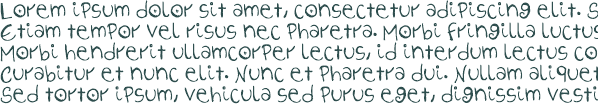 Lorem ipsum dolor sit amet, consectetur adipiscing elit. S
Etiam tempor vel risus nec pharetra. Morbi fringilla luctus
Morbi hendrerit ullamcorper lectus, id interdum lectus co
Curabitur et nunc elit. Nunc et pharetra dui. Nullam aliquet
Sed tortor ipsum, vehicula sed purus eget, dignissim vesti